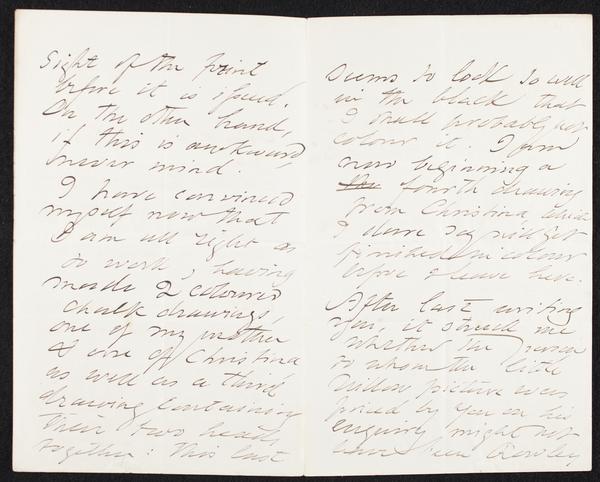 sight of the print
before it is issued.
On the other hand,
if this is awkward,
never mind.
I have convinced
myself now that
I am all right as
to work, having
made 2 coloured
chalk drawings,
one of my mother
& one of Christina
as well as a third
drawing containing
their two heads
together: this last
seems to look so well
in the black that
I shall probably not
colour it. I am
now beginning a
fourth drawing
from Christina which
I dare say will get
finished in colour
before I leave here.
After last writing
you, it struck me
whether the person
to whom the little
Willow picture was
priced by you on his
enquiry might not
have been Rowley